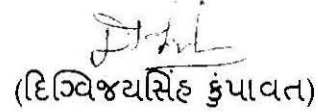 (દિગ્વિજયસિંહ કુંપાવત)